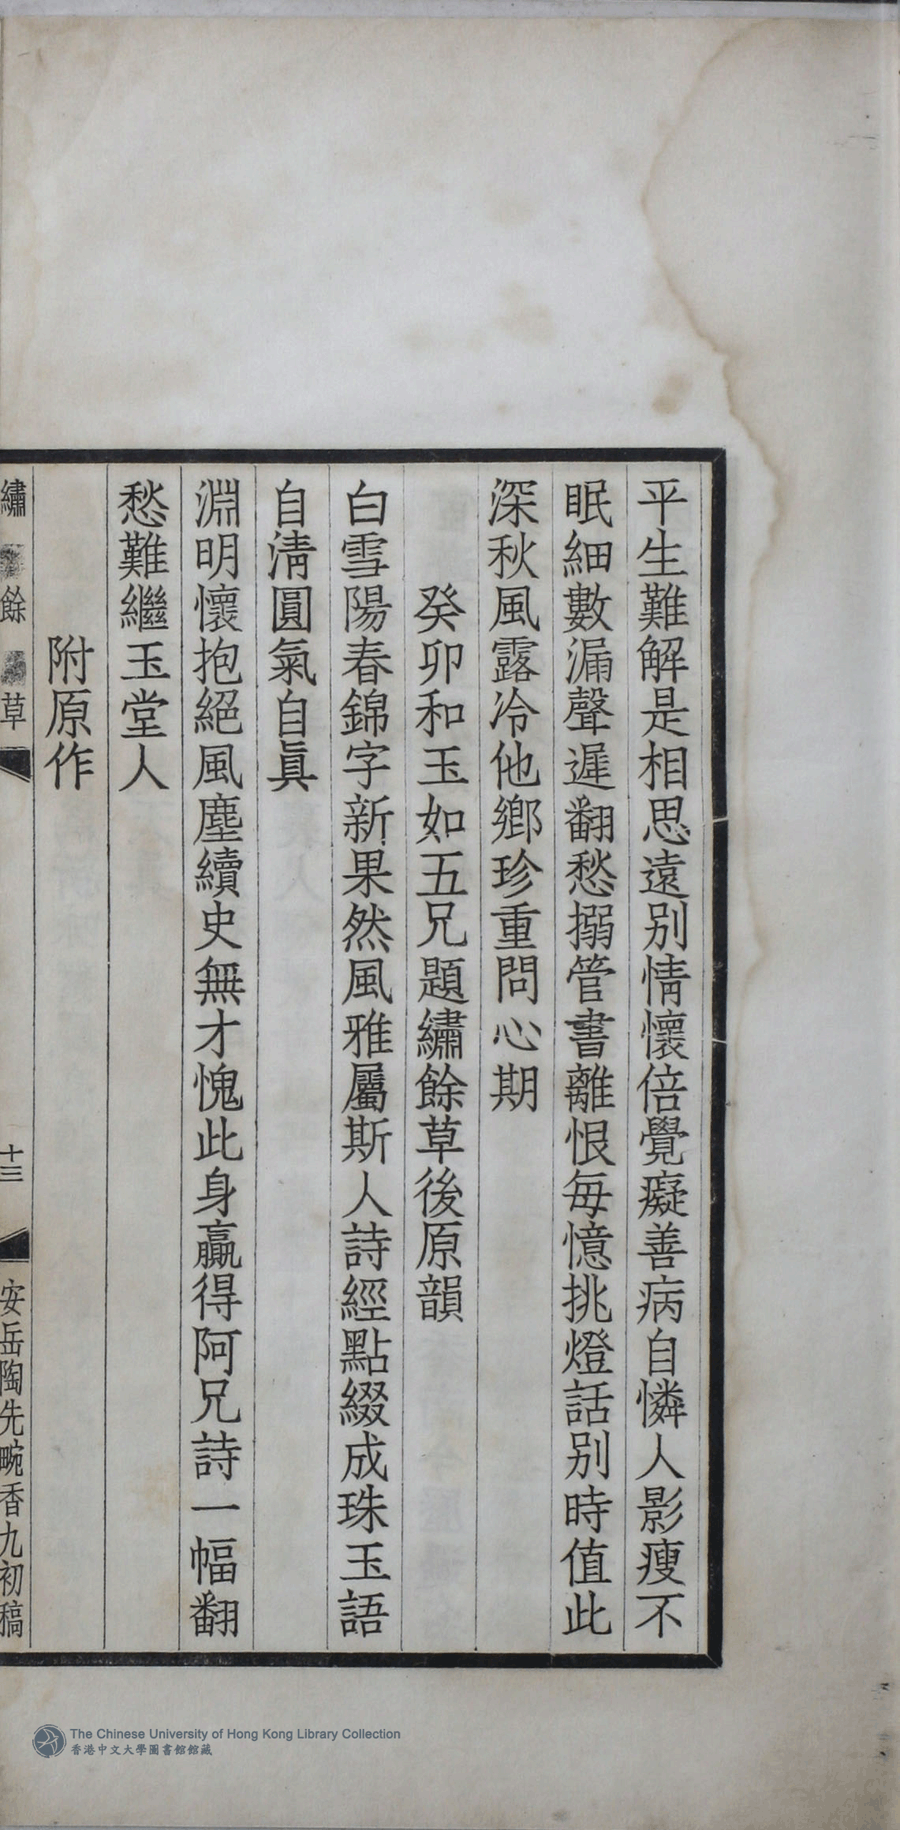 平生難解是相思遠別情懷倍覺癡善病自憐人影瘦不
眠細數漏聲遲翻愁搦管書離恨每憶挑燈話別時值此
深秋風露冷他鄉珍重問心期
癸卯和玉如五兄題繡餘草後原韻
白雪陽春錦字新果然風雅屬斯人詩經點綴成珠玉語
自淸圓氣自眞
淵明懷抱絕風塵續史無才愧此身贏得阿兄詩一幅翻
愁難繼玉堂人
附原作
繡餘草
十三
安岳陶先畹香九初稿
The Chinese University of Hong Kong Library Collection
香港中文大學圖書館館藏